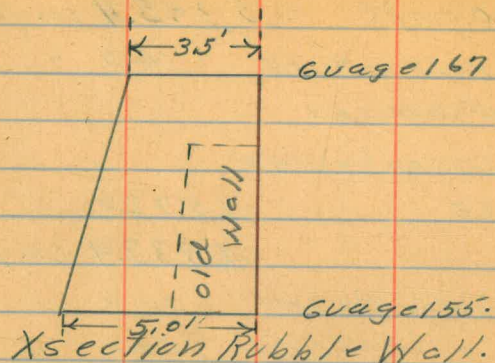 3.5'
Guage 167
old
Wall
Guage 155.
5.0'
Xsection Rubble Wall.